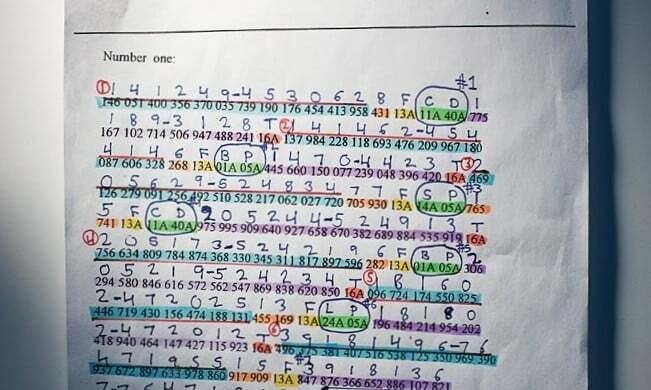 Number one:
#1
① 1 4 1 2 4 9-4 5 3 0 6 2 8 F C D 1
146 051 400 356 370 035 739 190 176 454 413 958 431 13A 11A 40A 775
1 8 9-3 1 2 8 T ② 1 4 1 4 6 2-4 5 4
167 102 714 506 947 488 241 16A 137 984 228 118 693 476 209 967 180
4 1 4 6 F B P 1 4 7 0-4 4 2 3 T ③ 2
087 606 328 268 13A 01A 05A 445 660 150 077 239 048 396 420 16A 469
0 5 6 2 9-5 2 4 8 3 4 7 7 F S P #3 1
126 279 091 256 492 510 528 217 062 027 720 705 930 13A 14A 05A 765
5 F C D 2 0 5 2 4 4-5 2 4 9 1 3 T
741 13A 11A 40A 975 995 909 640 927 658 670 382 689 884 535 919 16A
④ 2 0 5 1 7 3-5 2 4 2 1 9 6 F B P #5 2
756 634 809 784 874 368 330 345 311 817 897 596 282 13A 01A 05A 306
0 5 2 1 9-5 2 4 2 3 4 T ⑤ 1 8 1 6 0
294 580 846 616 572 562 547 869 838 620 850 16A 096 724 174 550 825
2-4 7 2 0 2 5 1 3 F L P #6 1 8 1 8 0
446 719 430 156 474 188 131 455 169 13A 24A 05A 196 484 214 954 202
2-4 7 2 0 1 2 T ⑥ 3 9 1 8 1 4 9 6-7 6
418 940 464 147 427 115 923 16A 496 375 381 407 516 538 125 350 969 390
4 7 1 9 5 5 1 5 F 3 9 1 8 1 3 6
937 672 897 633 978 860 917 909 13A 847 876 366 652 886 107 821